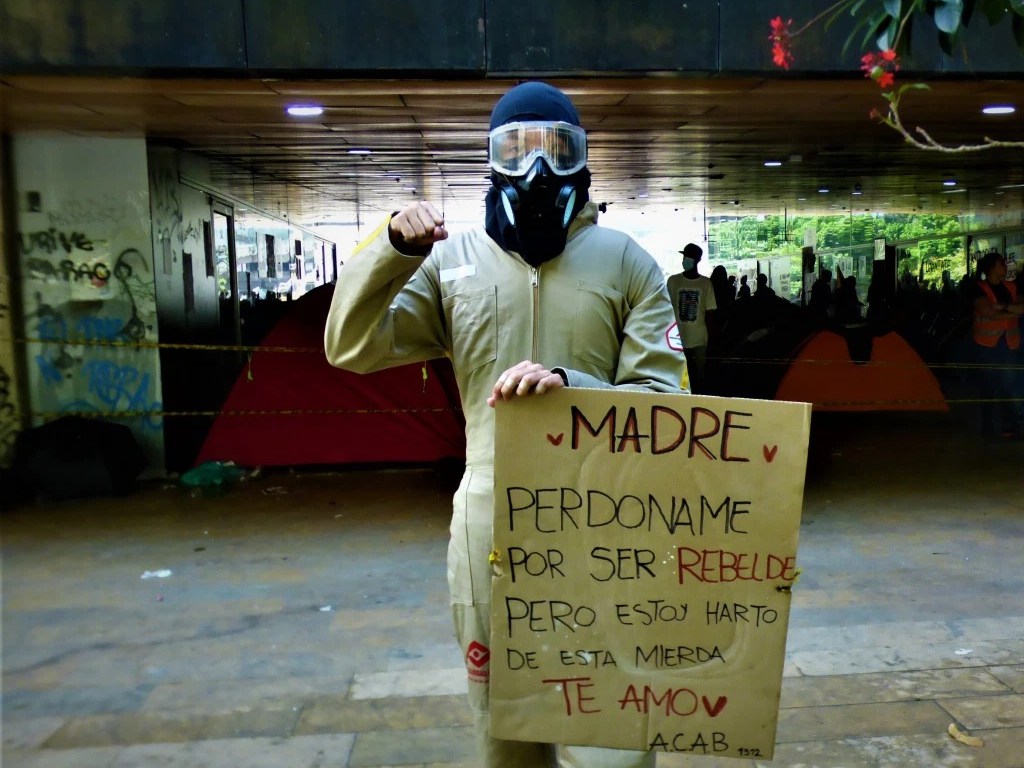 MADRE
PERDONAME
POR SER REBELDE
PERO ESTOY HARTO
DE ESTA MIERDA
TE AMO
A.C.A.B 1312